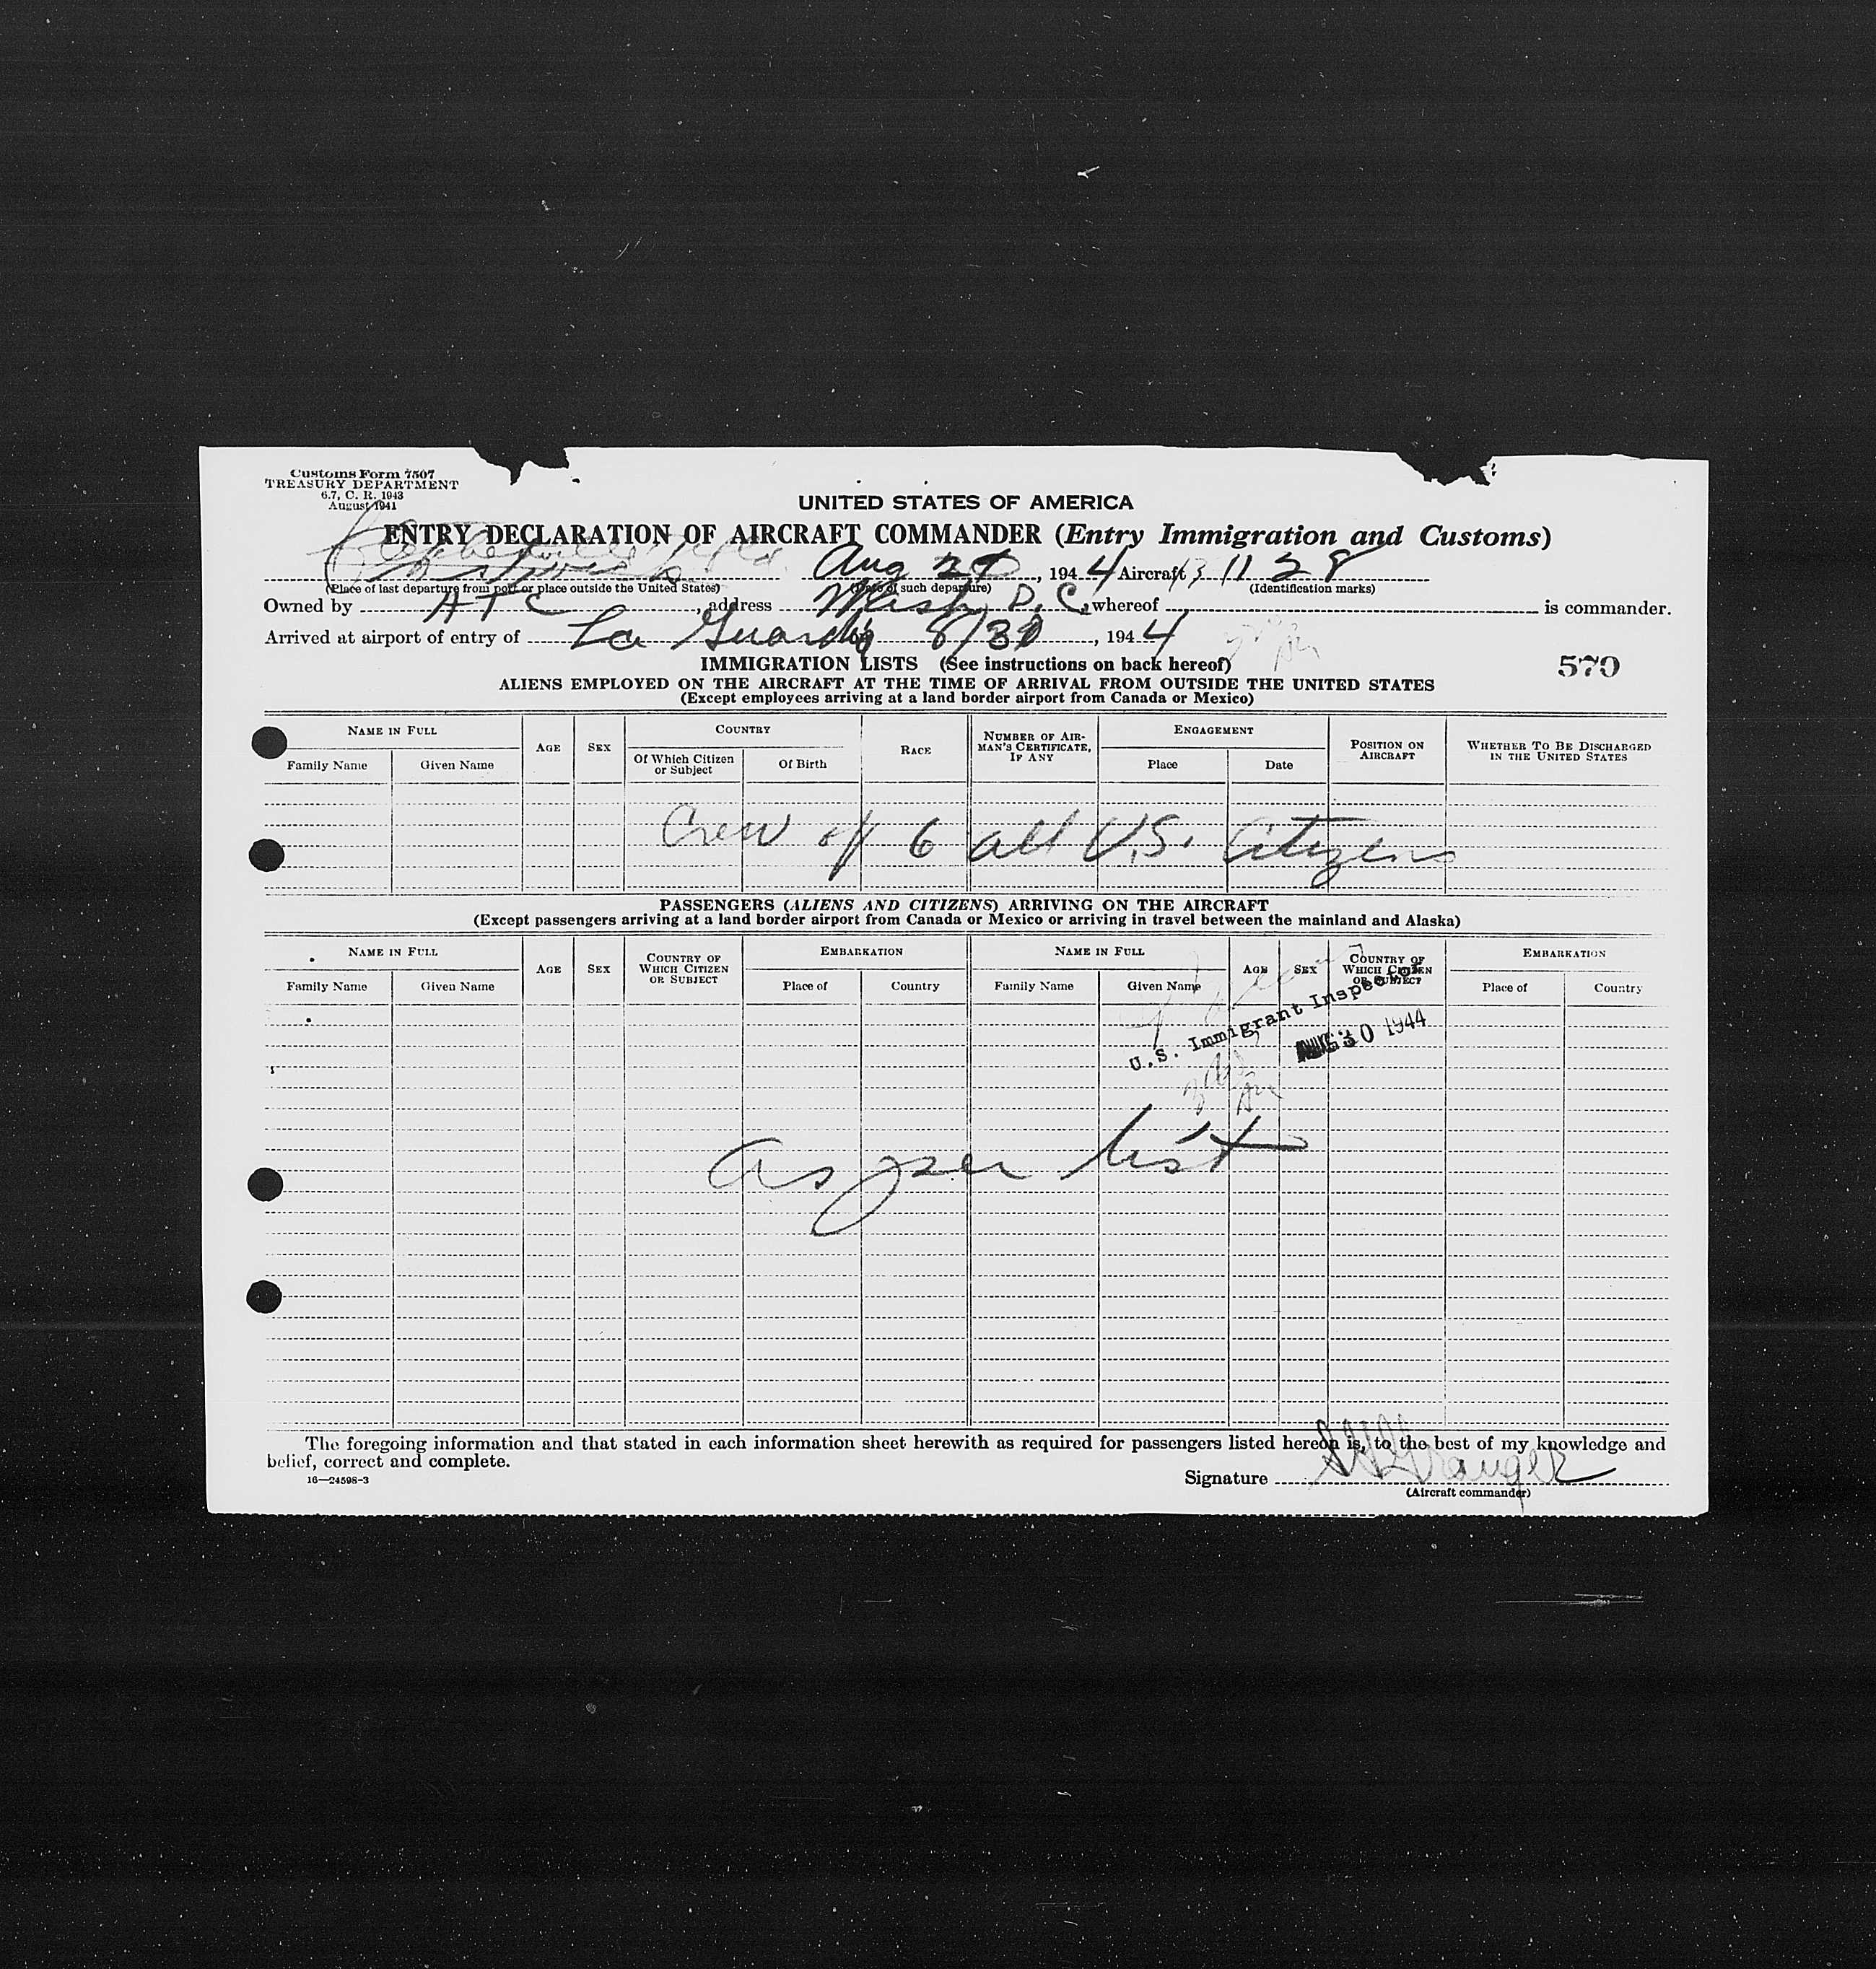 Customs Form 7507
TREASURY DEPARTMENT
6.7, C. R. 1943
August 1941
UNITED STATES OF AMERICA
ENTRY DECLARATION OF AIRCRAFT COMMANDER (Entry Immigration and Customs)
Aug , 1944 Aircraft 1128
(Place of last departure from port or place outside the United States) (Date of such departure) (Identification marks)
Owned by ATC, address Wash, D.C., whereof is commander.
Arrived at airport of entry of La Guardia 8/30, 1944
IMMIGRATION LISTS (See instructions on back hereof)
570
ALIENS EMPLOYED ON THE AIRCRAFT AT THE TIME OF ARRIVAL FROM OUTSIDE THE UNITED STATES
(Except employees arriving at a land border airport from Canada or Mexico)
NAME IN FULL AGE SEX COUNTRY RACE NUMBER OF AIRMAN'S CERTIFICATE, IF ANY ENGAGEMENT POSITION ON AIRCRAFT WHETHER TO BE DISCHARGED IN THE UNITED STATES
Family Name Given Name Of Which Citizen or Subject Of Birth Place Date
Crew of 6 all U.S. Citizens
PASSENGERS (ALIENS AND CITIZENS) ARRIVING ON THE AIRCRAFT
(Except passengers arriving at a land border airport from Canada or Mexico or arriving in travel between the mainland and Alaska)
NAME IN FULL AGE SEX COUNTRY OF WHICH CITIZEN OR SUBJECT EMBARKATION NAME IN FULL AGE SEX COUNTRY OF WHICH CITIZEN OR SUBJECT EMBARKATION
Family Name Given Name Place of Country Family Name Given Name Place of Country
U.S. Immigrant Inspector
AUG 30 1944
As per list
The foregoing information and that stated in each information sheet herewith as required for passengers listed hereon is, to the best of my knowledge and
belief, correct and complete.
16—24598-3
Signature
(Aircraft commander)